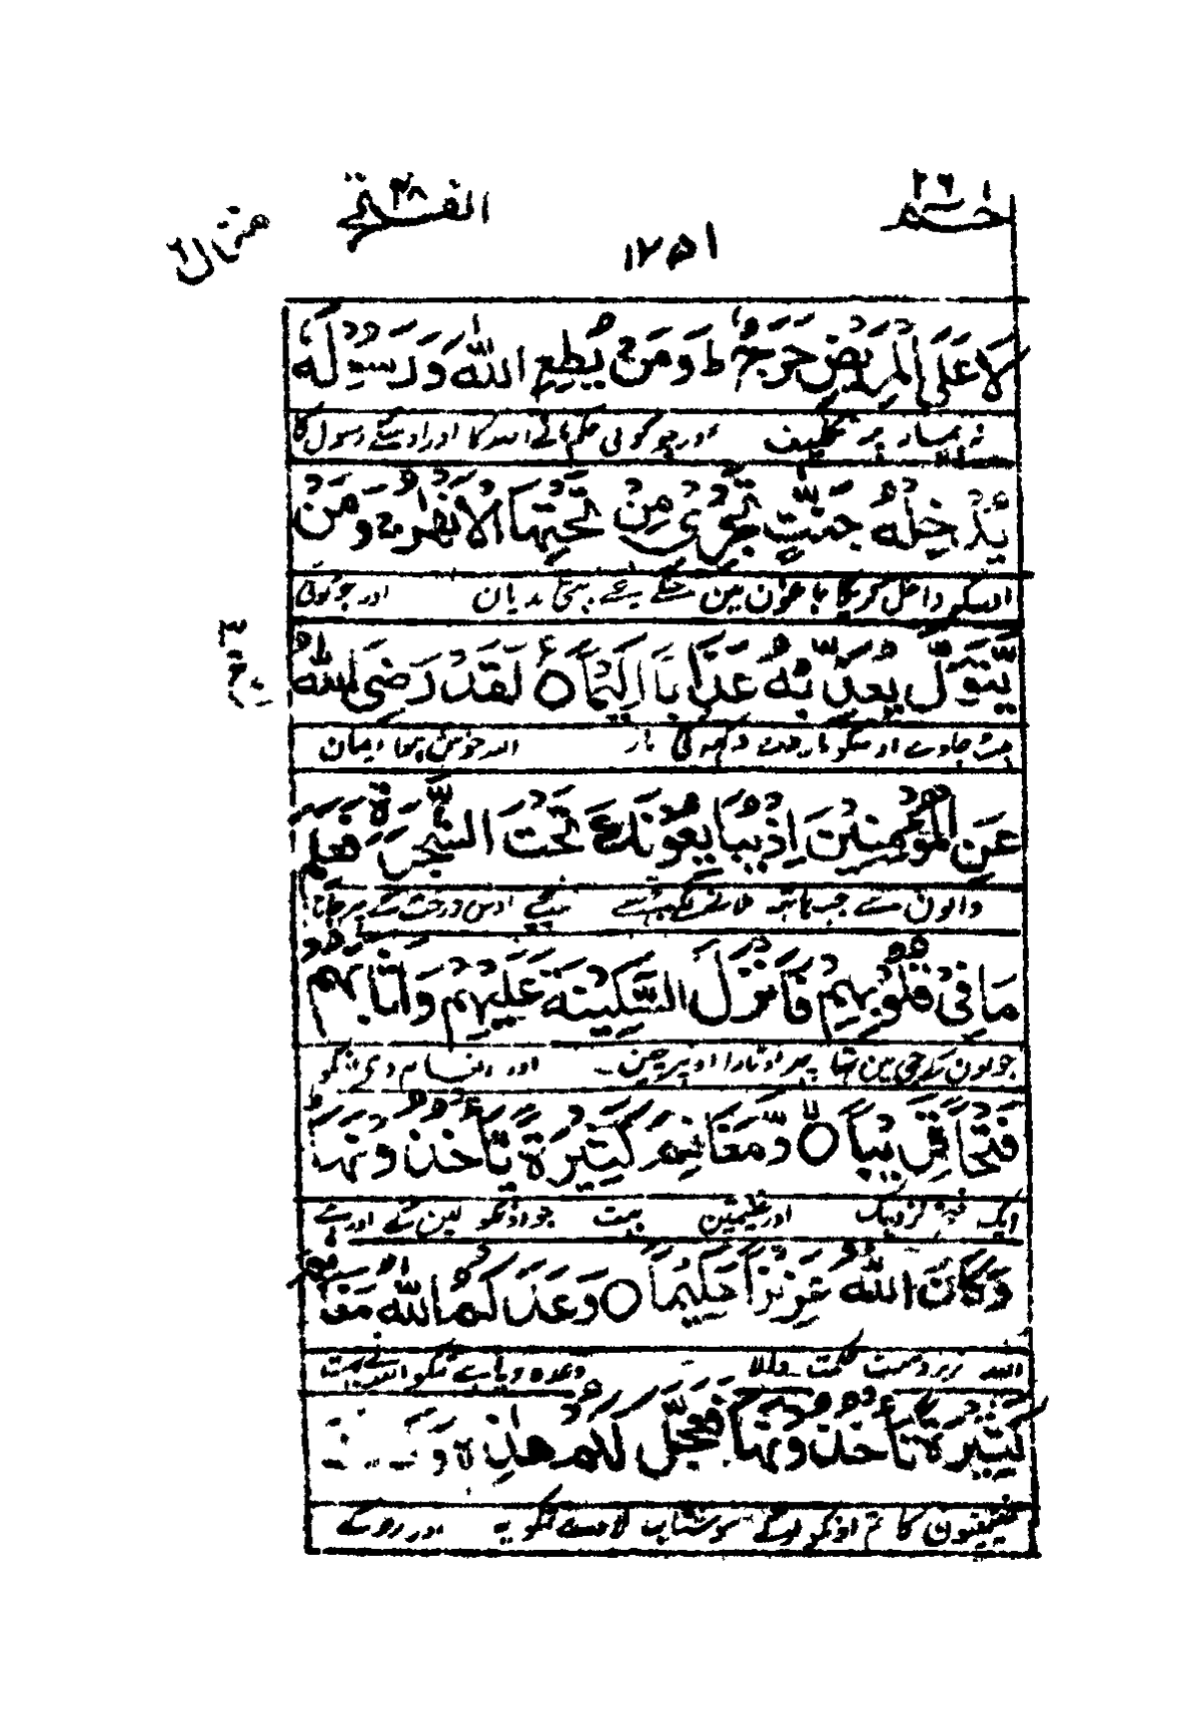 حٰم ٢٦
الفتح ٤٨
منزل ٦
١٢٥١
لَا عَلَى الْمَرِيْضِ حَرَجٌ ط وَمَنْ يُّطِعِ اللّٰهَ وَرَسُوْلَهٗ
نہ بیمار پر تکلیف اور جو کوئی حکم مانے اللہ کا اور اوسکے رسول کا
يُدْخِلْهُ جَنّٰتٍ تَجْرِيْ مِنْ تَحْتِهَا الْاَنْهٰرُ وَمَنْ
اسکو داخل کریگا باغون مین جنکے نیچے بہتی ندیان اور جو کوئی
يَّتَوَلَّ يُعَذِّبْهُ عَذَابًا اَلِيْمًا ۝ لَقَدْ رَضِيَ اللّٰهُ
جاوے اوسکو مار دکھہ کی مار اللہ خوش ہوا ایمان
عَنِ الْمُؤْمِنِيْنَ اِذْ يُبَايِعُوْنَكَ تَحْتَ الشَّجَرَةِ فَعَلِمَ
والون سے جب ہاتھ نیچے اوس درخت کے پھر جانا
مَا فِيْ قُلُوْبِهِمْ فَاَنْزَلَ السَّكِيْنَةَ عَلَيْهِمْ وَاَثَابَهُمْ
جو اون کے جی مین تھا پھر اوتارا اونپر چین اور انعام دی انکو
فَتْحًا قَرِيْبًا ۝ وَّمَغَانِمَ كَثِيْرَةً يَّاْخُذُوْنَهَا
ایک فتح نزدیک اور غنیمتین بہت جو اونکو لین گے اور ہے
وَكَانَ اللّٰهُ عَزِيْزًا حَكِيْمًا ۝ وَعَدَكُمُ اللّٰهُ مَغَانِمَ
اللہ زبردست حکمت والا وعدہ دیا ہے تمکو اللہ نے بہت
كَثِيْرَةً تَاْخُذُوْنَهَا فَعَجَّلَ لَكُمْ هٰذِهٖ وَكَفَّ
غنیمتون کا تم اونکو لوگے سو شتاب لادی تمکو یہ اور روکے